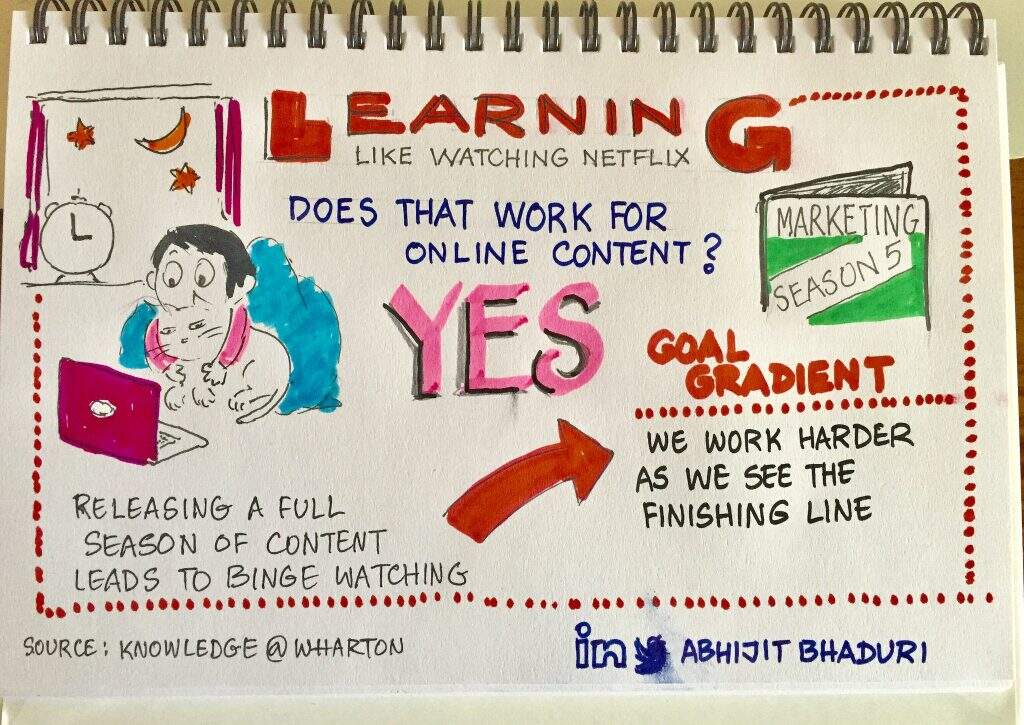 LEARNING
LIKE WATCHING NETFLIX
DOES THAT WORK FOR
ONLINE CONTENT?
YES
MARKETING
SEASON 5
GOAL
GRADIENT
WE WORK HARDER
AS WE SEE THE
FINISHING LINE
RELEASING A FULL
SEASON OF CONTENT
LEADS TO BINGE WATCHING
SOURCE: KNOWLEDGE@WHARTON
in ABHIJIT BHADURI